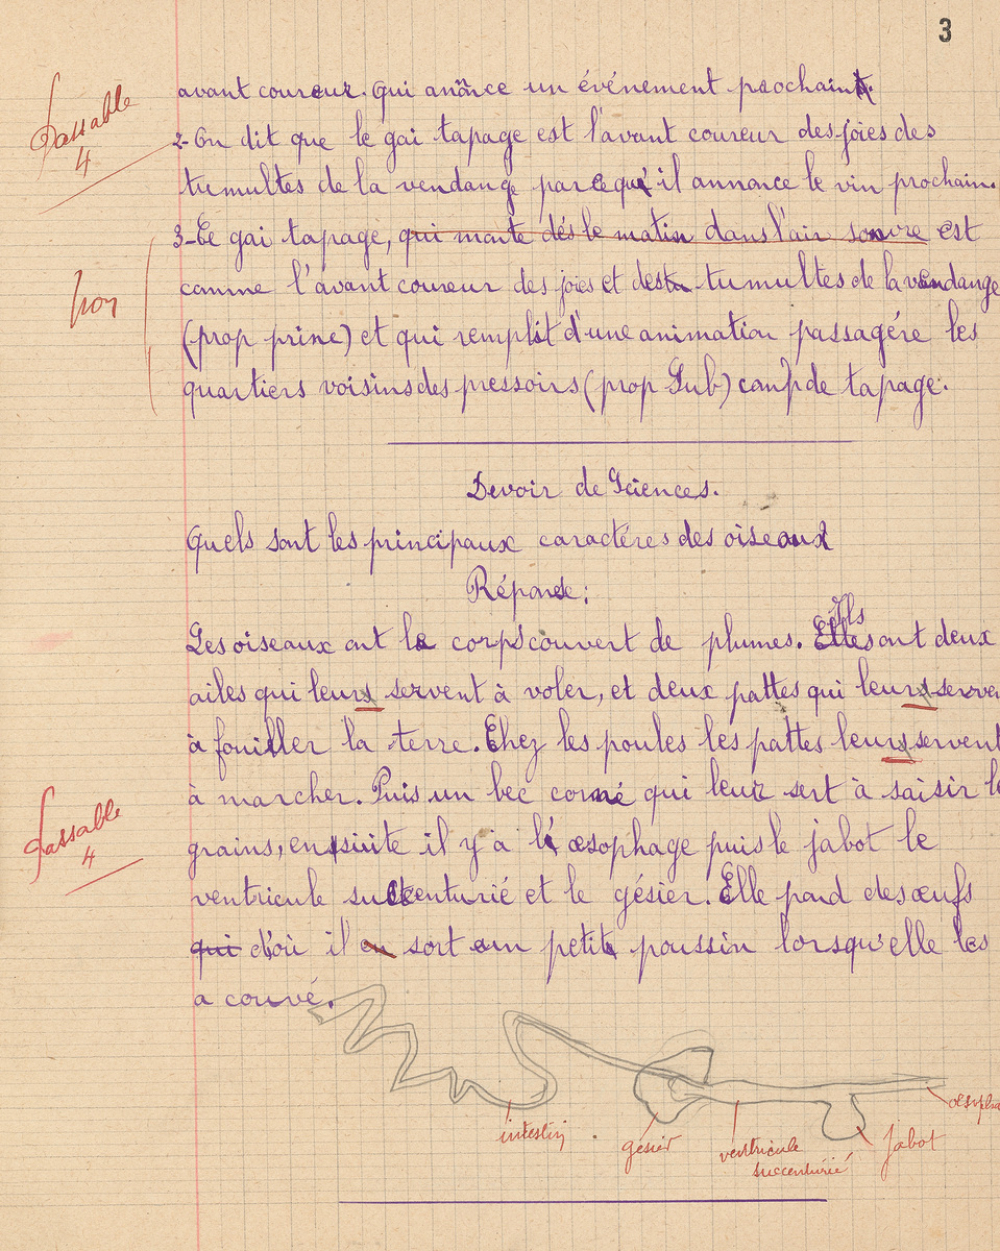 3
avant coureur. Qui anônce un événement prochain
Passable
4
2- On dit que le gai tapage est l'avant coureur des joies des
tumultes de la vendange parce qu'il annonce le vin prochain.
3- Le gai tapage, qui monte dés le matin dans l'air sonore est
comme l'avant coureur des joies et des tumultes de la vendange
(prop princ) et qui remplit d'une animation passagére les
quartiers voisins des pressoirs (prop Sub) comp de tapage.
Devoir de Sciences.
Quels sont les principaux caractéres des oiseaux
Réponse:
Les oiseaux ont le corps couvert de plumes. Elles ils ont deux
ailes qui leurs servent à voler, et deux pattes qui leurs serve
à fouiller la terre. Chez les poules les pattes leurs servent
à marcher. Puis un bec corné qui leur sert à saisir le
Passable
4
grains, ensuite il y à l' œsophage puis le jabot le
ventricule succenturié et le gésier. Elle pond des œufs
qui d'où il en sort un petit poussin lorsqu'elle les
a couvé.
intestin
gésier
ventricule
succenturié
jabot
œsopha